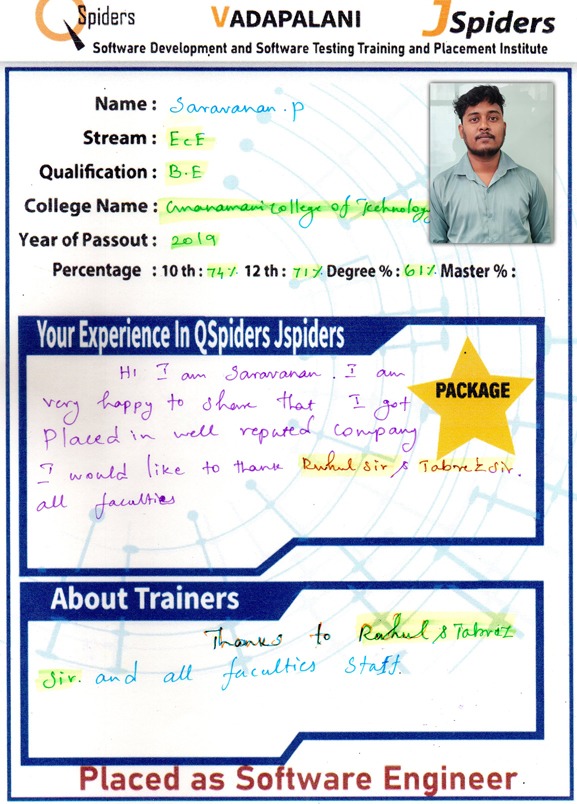 QSpiders VADAPALANI JSpiders
Software Development and Software Testing Training and Placement Institute
Name : Saravanan . P
Stream : EcE
Qualification : B.E
College Name : Gnanamani College of Technology
Year of Passout : 2019
Percentage : 10 th : 74% 12 th : 71% Degree % : 61% Master % :
Your Experience In QSpiders Jspiders
PACKAGE
Hi I am Saravanan . I am
very happy to share that I got
Placed in well reputed company
I would like to thank Rahul sir & Tabrez sir.
all faculties
About Trainers
Thanks to Rahul & Tabrez
Sir. and all faculties Staff.
Placed as Software Engineer